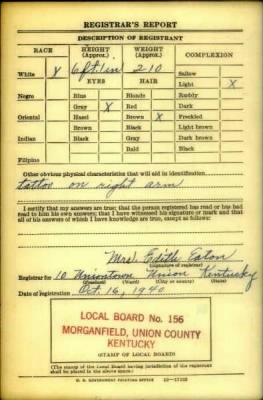 REGISTRAR'S REPORT
DESCRIPTION OF REGISTRANT
RACE HEIGHT (Approx.) WEIGHT (Approx.) COMPLEXION
White X 6 ft. 1 in 210 Sallow
EYES HAIR Light X
Negro Blue Blonde Ruddy
Gray X Red Dark
Oriental Hazel Brown X Freckled
Brown Black Light brown
Indian Black Gray Dark brown
Bald Black
Filipino
Other obvious physical characteristics that will aid in identification
tattoo on right arm
I certify that my answers are true; that the person registered has read or has had
read to him his own answers; that I have witnessed his signature or mark and that
all of his answers of which I have knowledge are true, except as follows:
Mrs. Edith Eaton
(Signature of registrar)
Registrar for 10 Uniontown Union Kentucky
(Precinct) (Ward) (City or county) (State)
Date of registration Oct. 16, 1940
LOCAL BOARD No. 156
MORGANFIELD, UNION COUNTY
KENTUCKY
(STAMP OF LOCAL BOARD)
(The stamp of the Local Board having jurisdiction of the registrant
shall be placed in the above space.)
U. S. GOVERNMENT PRINTING OFFICE